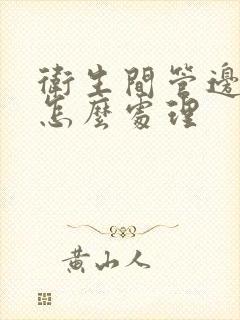 衛生間管邊
怎麼處理
黄山人